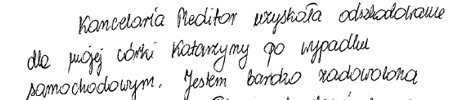 Kancelaria Meditor uzyskała odszkodowanie
dla mojej córki Katarzyny po wypadku
samochodowym. Jestem bardzo zadowolona